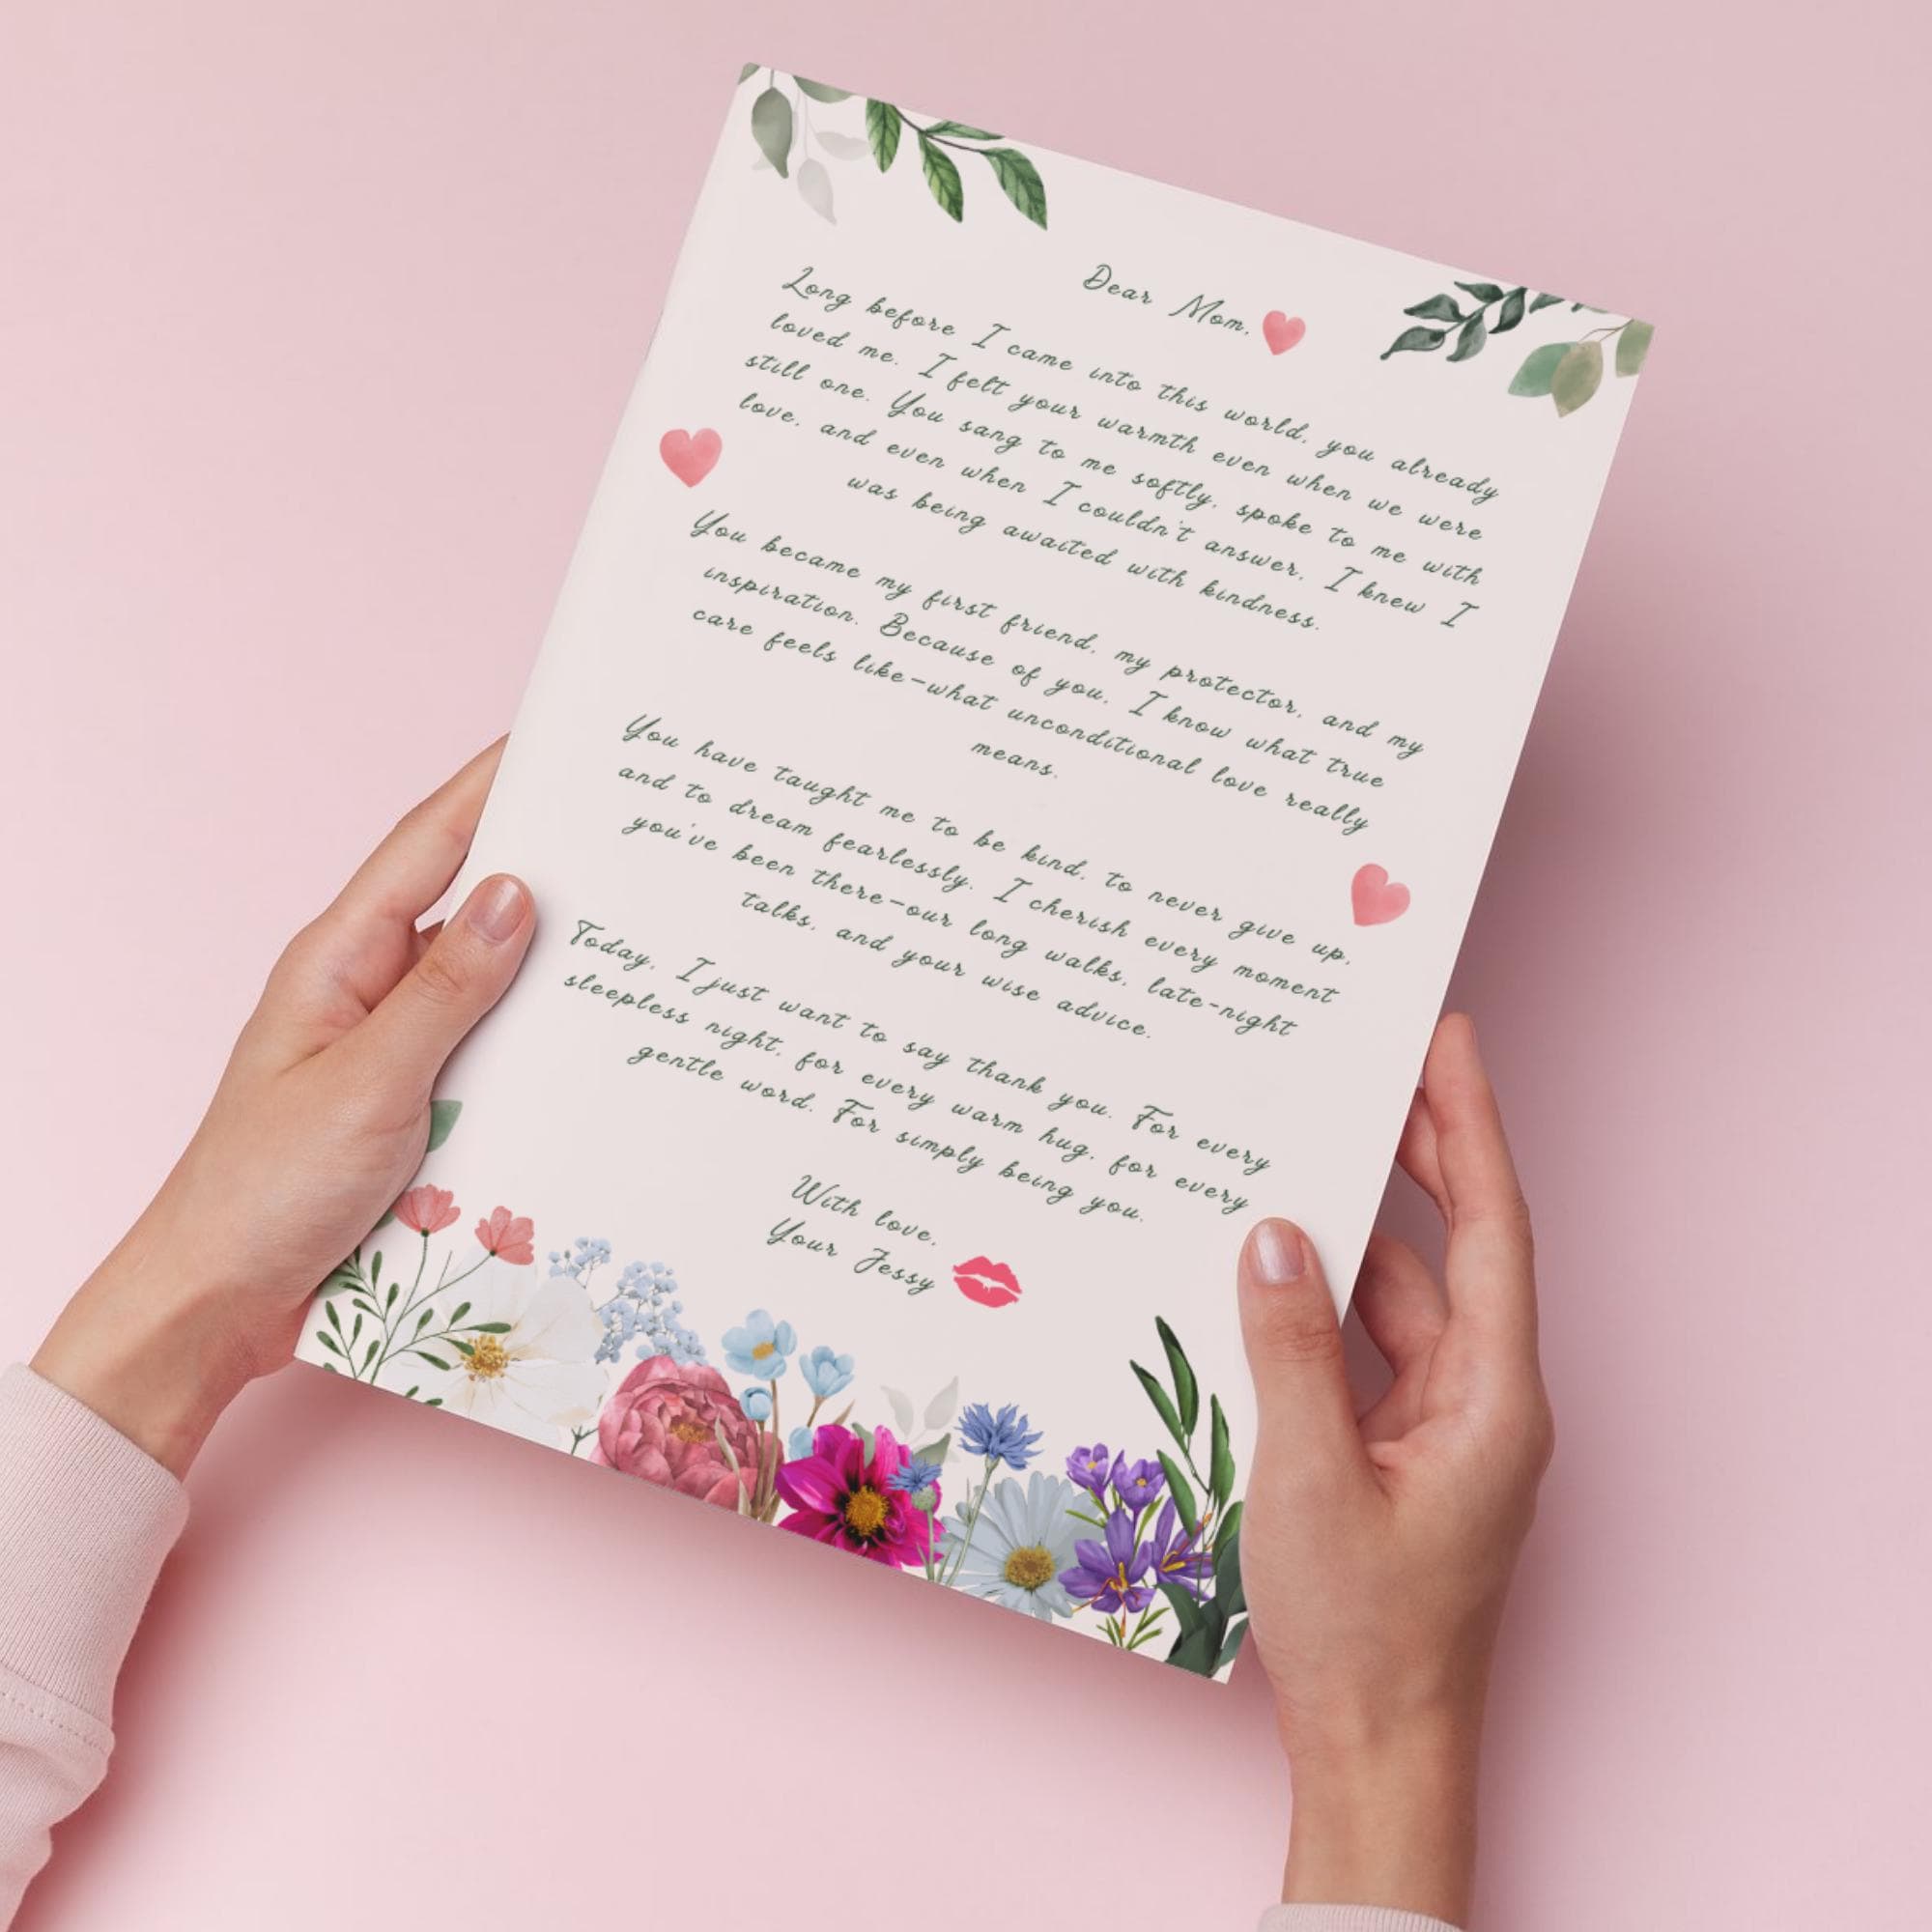 Dear Mom,
Long before I came into this world, you already
loved me. I felt your warmth even when we were
still one. You sang to me softly, spoke to me with
love, and even when I couldn't answer, I knew I
was being awaited with kindness.
You became my first friend, my protector, and my
inspiration. Because of you, I know what true
care feels like—what unconditional love really
means.
You have taught me to be kind, to never give up,
and to dream fearlessly. I cherish every moment
you've been there—our long walks, late-night
talks, and your wise advice.
Today, I just want to say thank you. For every
sleepless night, for every warm hug, for every
gentle word. For simply being you.
With love,
Your Jessy